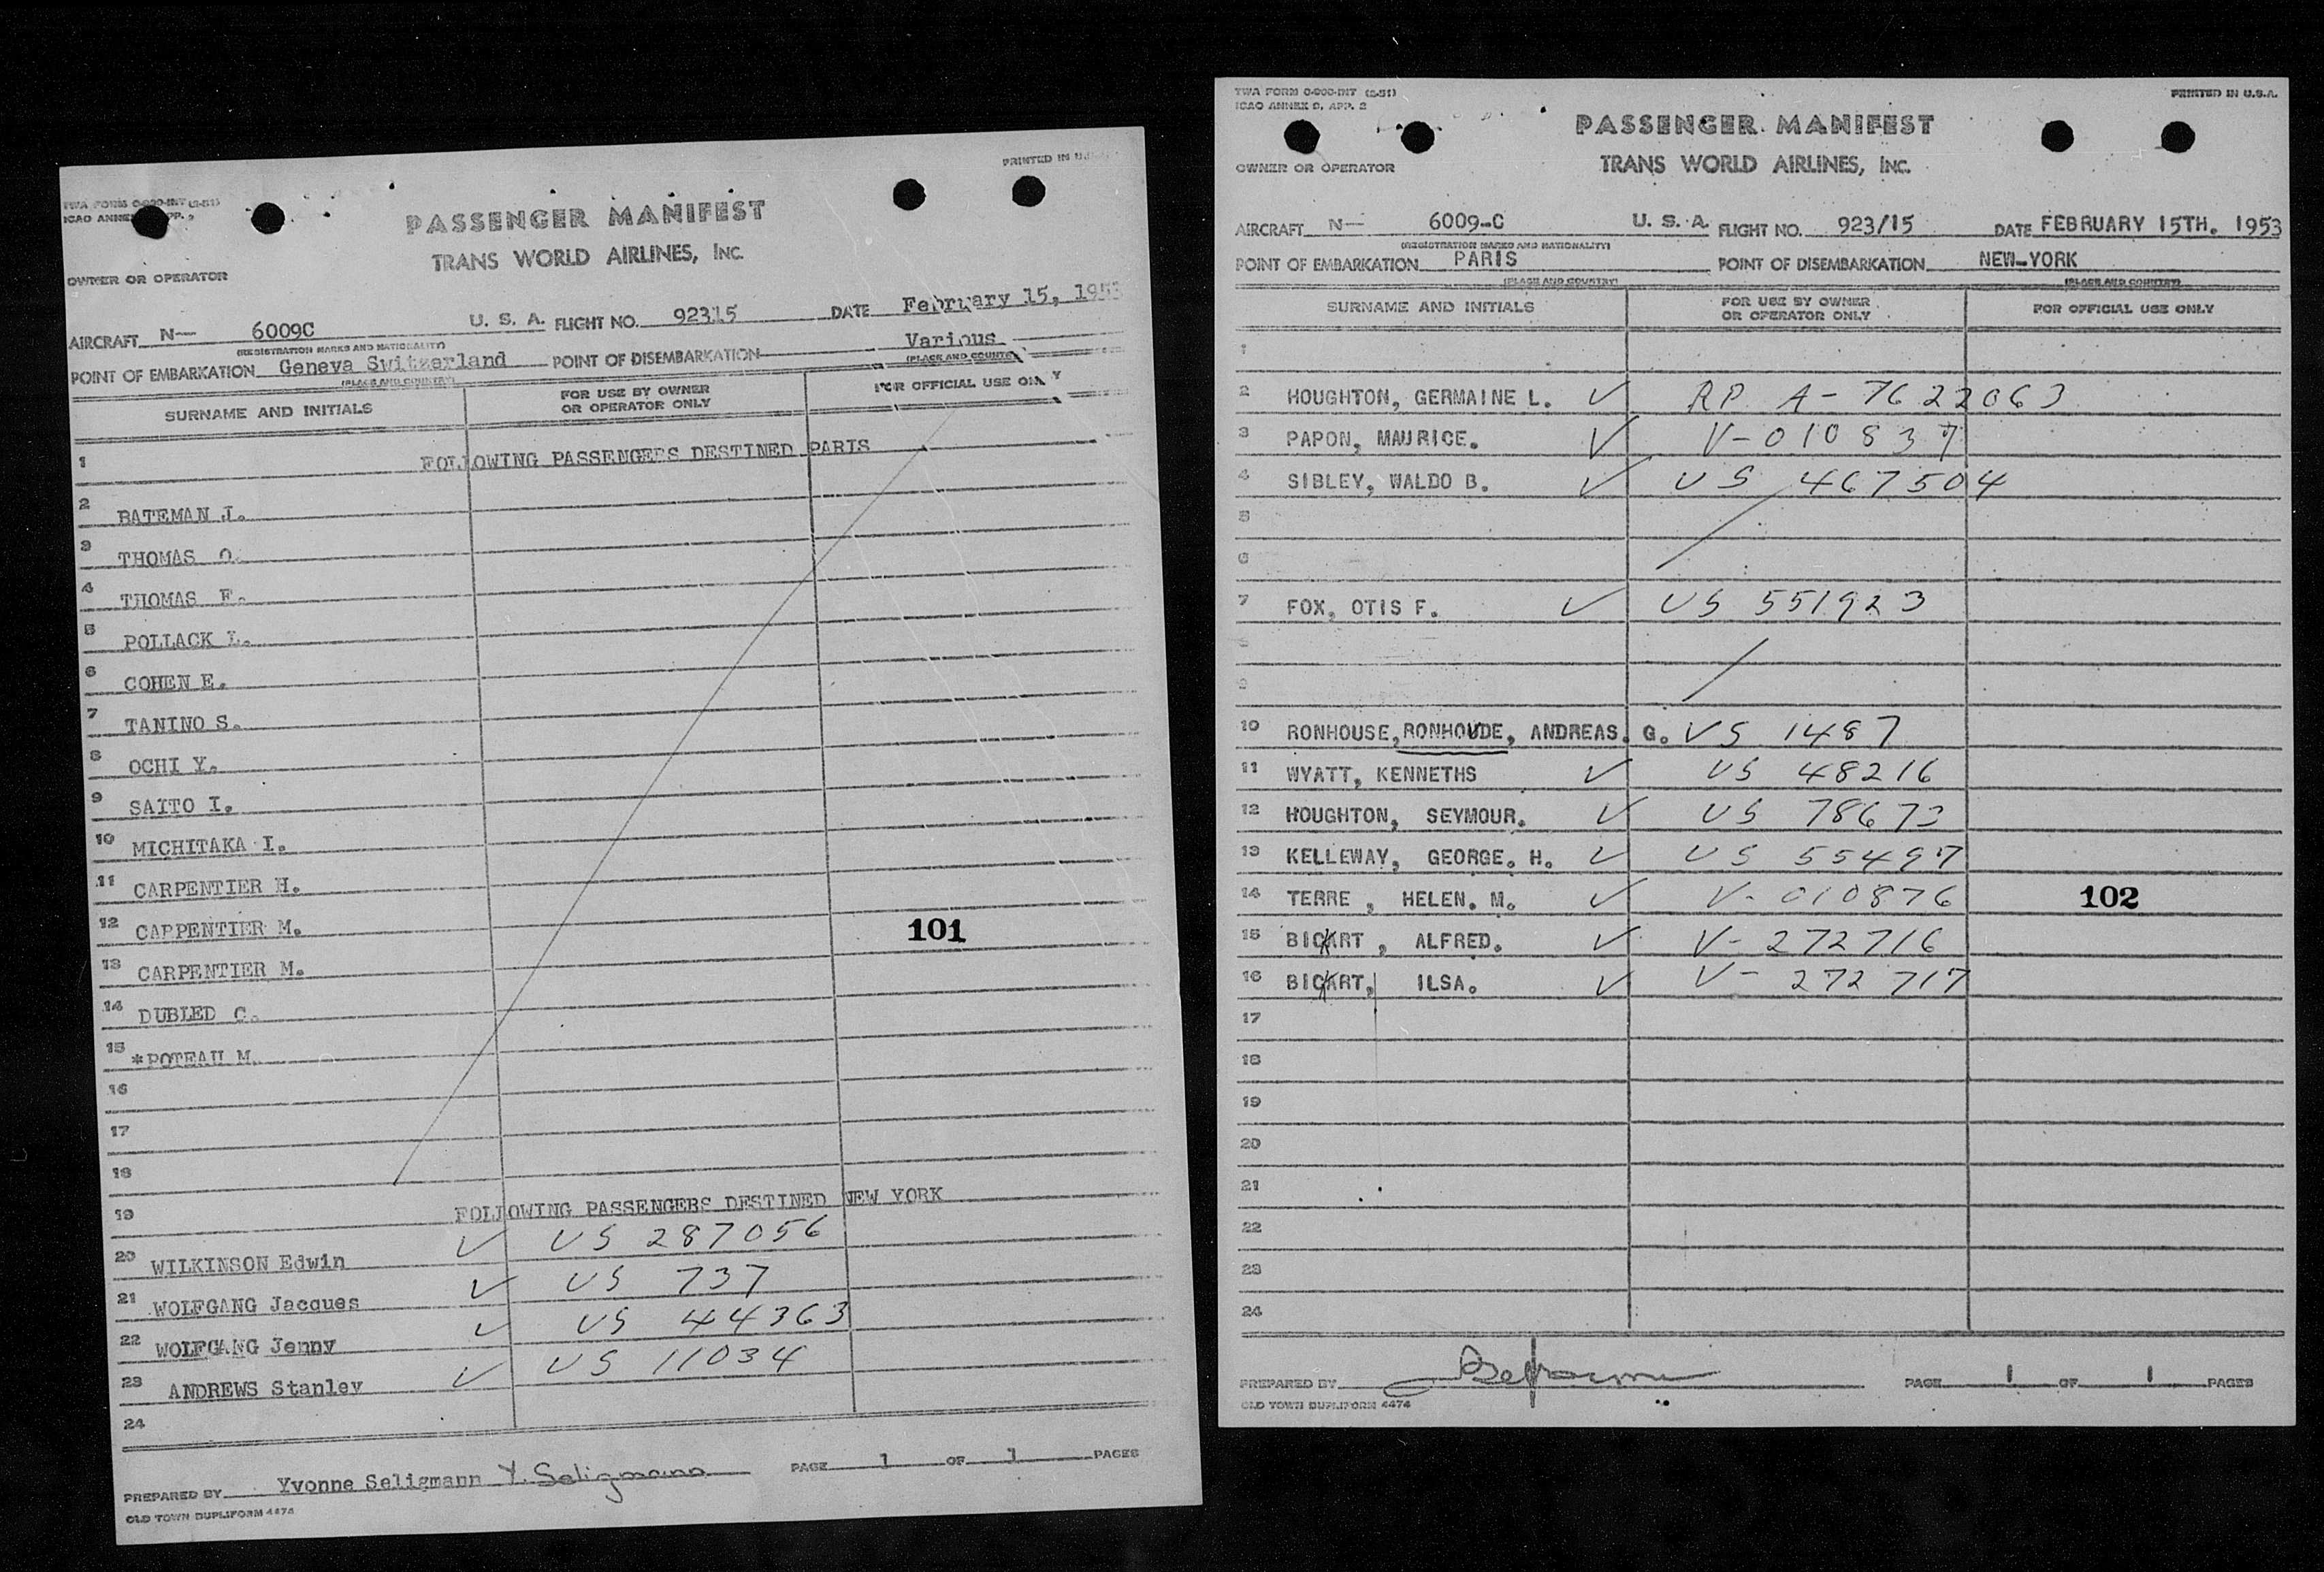 TWA FORM O-900-INT (2-51)
ICAO ANNEX 9, APP. 2
PRINTED IN U.
PASSENGER MANIFEST
TRANS WORLD AIRLINES, INC.
OWNER OR OPERATOR
AIRCRAFT N— 6009C U. S. A. FLIGHT NO. 92315 DATE February 15, 1953
(REGISTRATION MARKS AND NATIONALITY)
POINT OF EMBARKATION Geneva Switzerland POINT OF DISEMBARKATION Various
(PLACE AND COUNTRY) (PLACE AND COUNTRY)
SURNAME AND INITIALS FOR USE BY OWNER OR OPERATOR ONLY FOR OFFICIAL USE ONLY
1 FOLLOWING PASSENGERS DESTINED PARIS
2 BATEMAN J.
3 THOMAS O.
4 THOMAS F.
5 POLLACK L.
6 COHEN E.
7 TANINO S.
8 OCHI Y.
9 SAITO I.
10 MICHITAKA I.
11 CARPENTIER H.
12 CARPENTIER M. 101
13 CARPENTIER M.
14 DUBLED C.
15 *POTEAU M.
16
17
18
19 FOLLOWING PASSENGERS DESTINED NEW YORK
20 WILKINSON Edwin ✓ US 287056
21 WOLFGANG Jacques ✓ US 737
22 WOLFGANG Jenny ✓ US 44363
23 ANDREWS Stanley ✓ US 11034
24
PREPARED BY Yvonne Seligmann Y. Seligmann PAGE 1 OF 1 PAGES
OLD TOWN DUPLIFORM 4474
TWA FORM O-900-INT (2-51)
ICAO ANNEX 9, APP. 2
PRINTED IN U.S.A.
PASSENGER MANIFEST
TRANS WORLD AIRLINES, INC.
OWNER OR OPERATOR
AIRCRAFT N— 6009-C U. S. A. FLIGHT NO. 923/15 DATE FEBRUARY 15TH. 1953
(REGISTRATION MARKS AND NATIONALITY)
POINT OF EMBARKATION PARIS POINT OF DISEMBARKATION NEW-YORK
(PLACE AND COUNTRY) (PLACE AND COUNTRY)
SURNAME AND INITIALS FOR USE BY OWNER OR OPERATOR ONLY FOR OFFICIAL USE ONLY
1
2 HOUGHTON, GERMAINE L. ✓ RP A-7622063
3 PAPON, MAURICE. ✓ V-010837
4 SIBLEY, WALDO B. ✓ US 467504
5
6
7 FOX, OTIS F. ✓ US 551923
8
9
10 RONHOUSE, RONHOUDE, ANDREAS. G. US 1487
11 WYATT, KENNETHS ✓ US 48216
12 HOUGHTON, SEYMOUR. ✓ US 78673
13 KELLEWAY, GEORGE. H. ✓ US 55497
14 TERRE , HELEN. M. ✓ V-010876 102
15 BICKART , ALFRED. ✓ V-272716
16 BICKART, ILSA. ✓ V-272717
17
18
19
20
21
22
23
24
PREPARED BY PAGE 1 OF 1 PAGES
OLD TOWN DUPLIFORM 4474